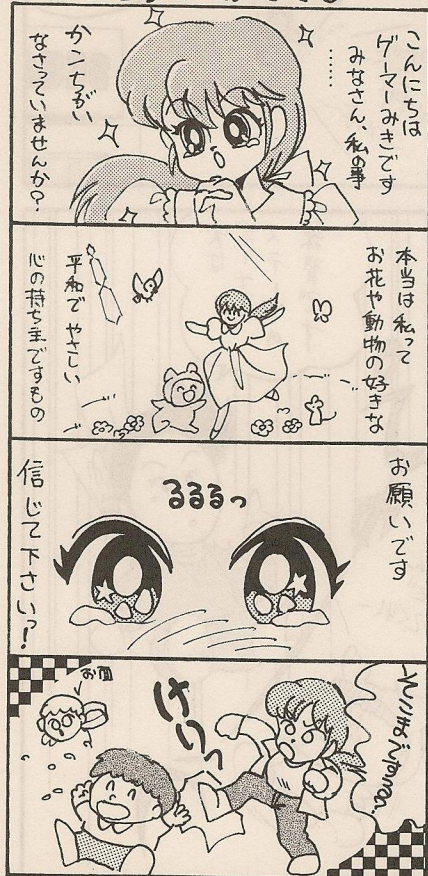 こんにちは
ゲーマーみきです
みなさん、私の事
……
かンちがい
なさっていませんか?
本当は私って
お花や動物の好きな
平和で やさしい
心の持ち主ですもの
お願いです
るるるっ
信じて下さいっ!
お面
けりっ